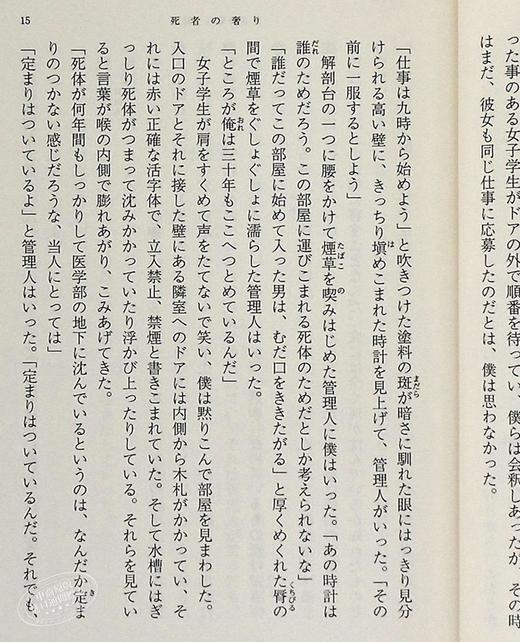 った事のある女子学生がドアの外で順番を待っていい、僕らは会釈しあったが、その時
はまだ、彼女も同じ仕事に応募したのだとは、僕は思わなかった。
15
死者の奢り
「仕事は九時から始めよう」と吹きつけた塗料の斑が暗さに馴れた眼にはっきり見分
けられる高い壁に、きっちり塡めこまれた時計を見上げて、管理人がいった。「その
前に一服するとしよう」
解剖台の一つに腰をかけて煙草を喫みはじめた管理人に僕はいった。「あの時計は
誰のためだろう。この部屋に運びこまれる死体のためだとしか考えられないな」
「誰だってこの部屋に始めて入った男は、むだ口をききたがる」と厚くめくれた脣の
間で煙草をぐしょぐしょに濡らした管理人はいった。
「ところが俺は三十年もここへつとめているんだ」
女子学生が肩をすくめて声をたてないで笑い、僕は黙りこんで部屋を見まわした。
入口のドアとそれに接した壁にある隣室へのドアには内側から木札がかかってい、そ
れには赤い正確な活字体で、立入禁止、禁煙と書きこまれていた。そして水槽にはぎ
っしり死体がつまって沈みかかっていたり浮かび上ったりしている。それらを見てい
ると言葉が喉の内側で膨れあがり、こみあげてきた。
「死体が何年間もしっかりして医学部の地下に沈んでいるというのは、なんだか定ま
りのつかない感じだろうな、当人にとっては」
「定まりはついているよ」と管理人はいった。「定まりはついているんだ。それでも、